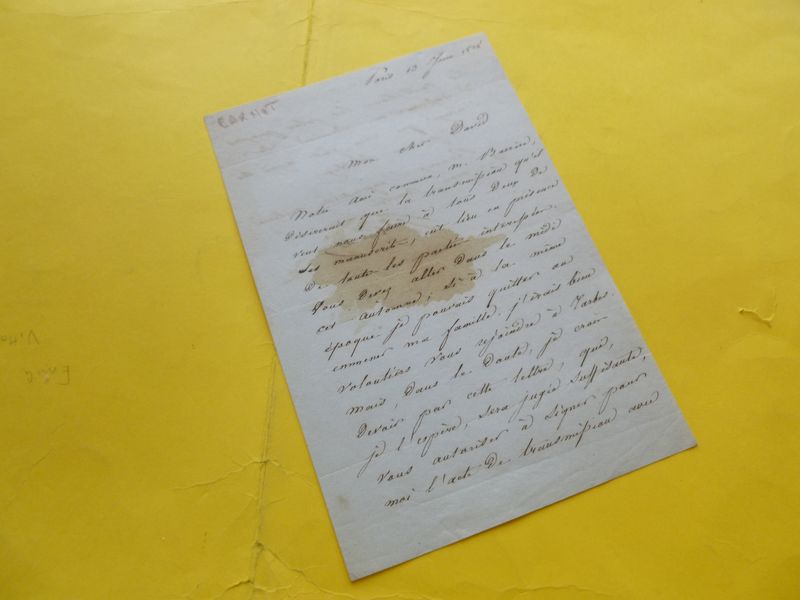 CARNOT
Paris 13 Juin
Mon cher David
Notre ami commun, M. Barère,
désirerait que la transmission qu'il
veut nous faire à tous deux de
ses manuscrits, eût lieu en présence
de toutes les parties intéressées.
Vous devez aller dans le midi
cet automne; si à la même
époque je pouvais quitter ou
emmener ma famille, j'irais bien
volontiers vous rejoindre à Tarbes.
mais, dans le doute, je crois
devoir par cette lettre, qui,
je l'espère, sera jugée suffisante,
vous autoriser à signer pour
moi l'acte de transmission avec